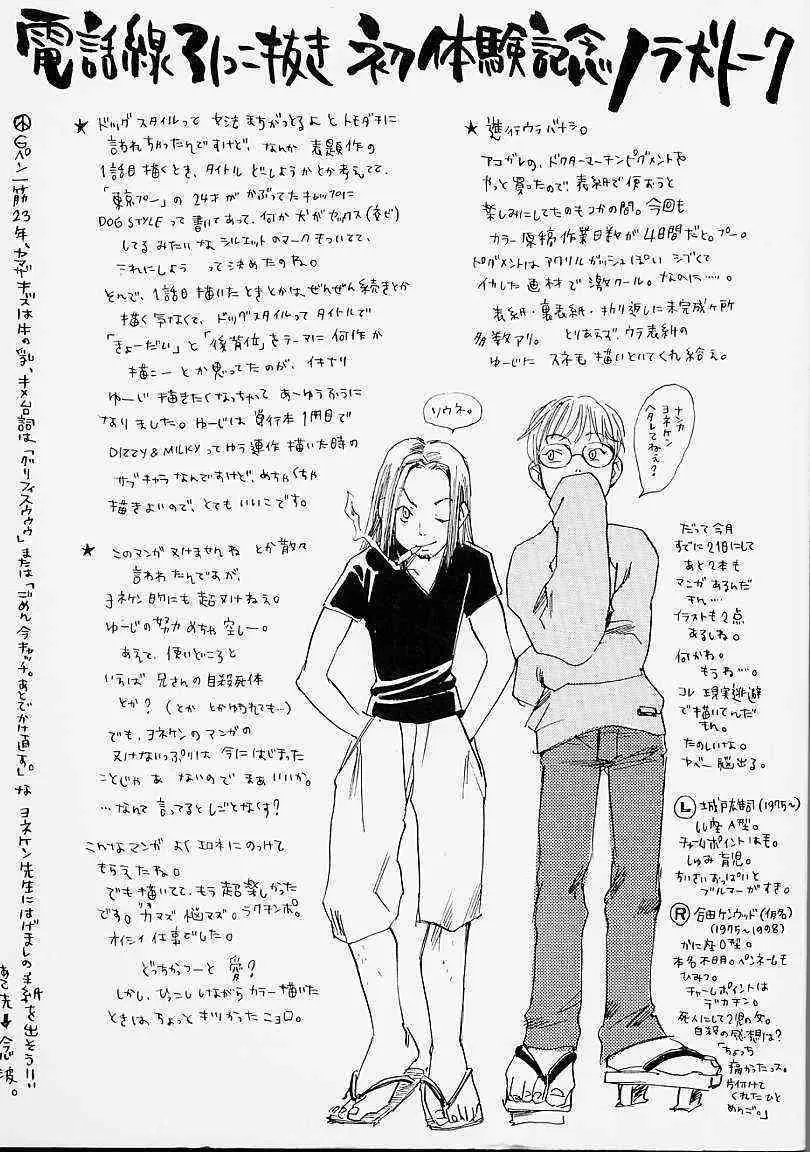 電話線ろっこ抜き 初体験記念 ノラ犬トーク
★ 進行ウラバナシ。
アコガレの、ドクターマーチンピグメントを
やっと買ったので、表紙で使おうと
楽しみにしてたのもつかの間。今回も
カラー原稿作業日数が4日間だと。プー。
ピグメントはアクリルガッシュぽい シブくて
イカした画材で激クール。なのに……。
表紙・裏表紙・折り返しに未完成ヶ所
多数アリ。とりあえず、ウラ表紙の
ゆーじに スネ毛 描いといてくれ給え。
★ ドッグスタイルって 文法まちがっとるよ とトモダチに
言われちゃったんですけど、なんか 表題作の
1話目描くとき、タイトル どしようかとか考えてて、
「東京プー」の24才がかぶってたキャップに
DOG STYLEって書いてあって、何か犬がセックス(交ビ)
してるみたいな、シルエットのマークもついてて、
これにしよう って決めたのね。
そんで、1話目描いたときとかは、ぜんぜん続きとか
描く気なくて、ドッグスタイルってタイトルで
「きょーだい」と「後背位」をテーマに何作か
描こー とか思ってたのが、イキナリ
ゆーじ描きたくなっちゃって あーゆうふうに
なりました。ゆーじは単行本1冊目で
DIZZY & MILKYってゆう連作描いた時の
サブキャラなんですけど、めちゃくちゃ
描きよいので、とてもいいこです。
★ このマンガ ヌけませんね とか散々
言われたんですが、
ヨネケン的にも超ヌけねえ。
ゆーじの努力めちゃ空しー。
あえて、使いどころと
いちば 兄さんの自殺死体
とか？(とか とかゆわれても…)
でも、ヨネケンのマンガの
ヌけないっぷりは 今にはじまった
ことじゃあ ないので まあいいか。
…なんて 言ってるとしごとなくす？
こんなマンガ よくエロネにのっけて
もらえたね。
でも描いてて、もう超楽しかった
です。カマズ 悩マズ。ラクチンポ。
オイシイ仕事でした。
どっちかっつーと 愛？
しかし、ひっこししながらカラー描いた
ときは、ちょっとキツかったニョロ。
ソウネ。
ナンカ
ヨネケン
ヘタレてねぇ？
だって今月
すでに21日にして
あと2本も
マンガあるんだ
もん…
イラストも2点
あるしね。
何かね。
もうね…。
コレ 現実逃避
で描いてんだ
もん。
たのしいな。
ヤベー 脳出る。
Ⓛ 城戸雄司(1975〜)
しし座A型。
チャームポイントはも。
しゅみ 育児。
ちいさいおっぱいと
ブルマーがすき。
Ⓡ 合田ケンウッド(仮名)
(1975〜1998)
かに座O型。
本名不明。ペンネームも
ひみつ。
チャームポイントは
デカチン。
死人にして2児の父。
自殺の感想は？
「ちょっち
痛かったっス。
片付けて
くれたひと
めんご。」
Gペン一筋23年、ヤマザキズは牛の乳、キメ台詞は、「グリフィスウゥゥ」または「ごめん、今キャッチ。あとでかけ直す。」な ヨネケン先生にはげましの手紙を出そう!!!
あて先↓ 念波。